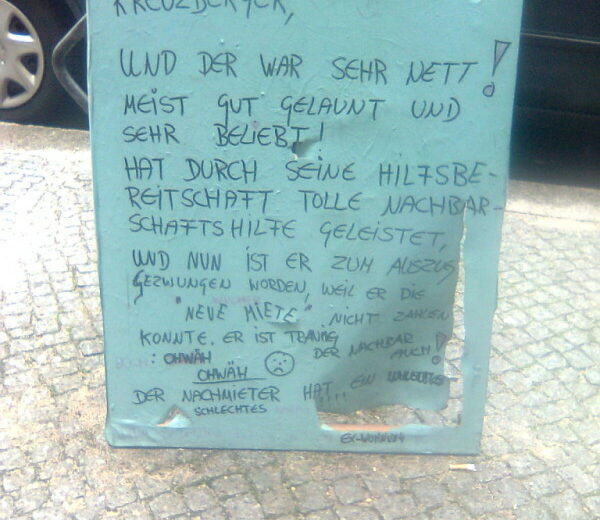 KREUZBERGER,
UND DER WAR SEHR NETT!
MEIST GUT GELAUNT UND
SEHR BELIEBT!
HAT DURCH SEINE HILFSBE-
REITSCHAFT TOLLE NACHBAR-
SCHAFTSHILFE GELEISTET,
UND NUN IST ER ZUM AUSZUG
GEZWUNGEN WORDEN, WEIL ER DIE
"NEUE MIETE" NICHT ZAHLEN
KONNTE. ER IST TRAURIG DER NACHBAR AUCH!
: OHWÄH
OHWÄH
DER NACHMIETER HAT.. EIN
SCHLECHTES